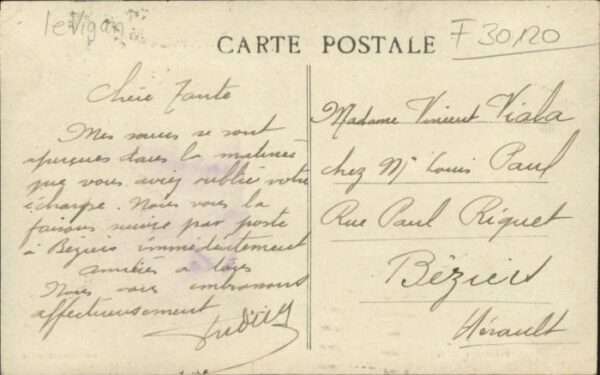 le Vigan
F 30,120
CARTE POSTALE
Chère Tante
Mes soeurs se sont
aperçues dans la matinée
que vous aviez oublié votre
écharpe. Nous vous la
faisons suivre par poste
à Beziers immédiatement
amitiés a tous
Nous vous embrassons
affectueusement
Madame Vincent Viala
chez Mr Louis Paul
Rue Paul Riquet
Béziers
Hérault